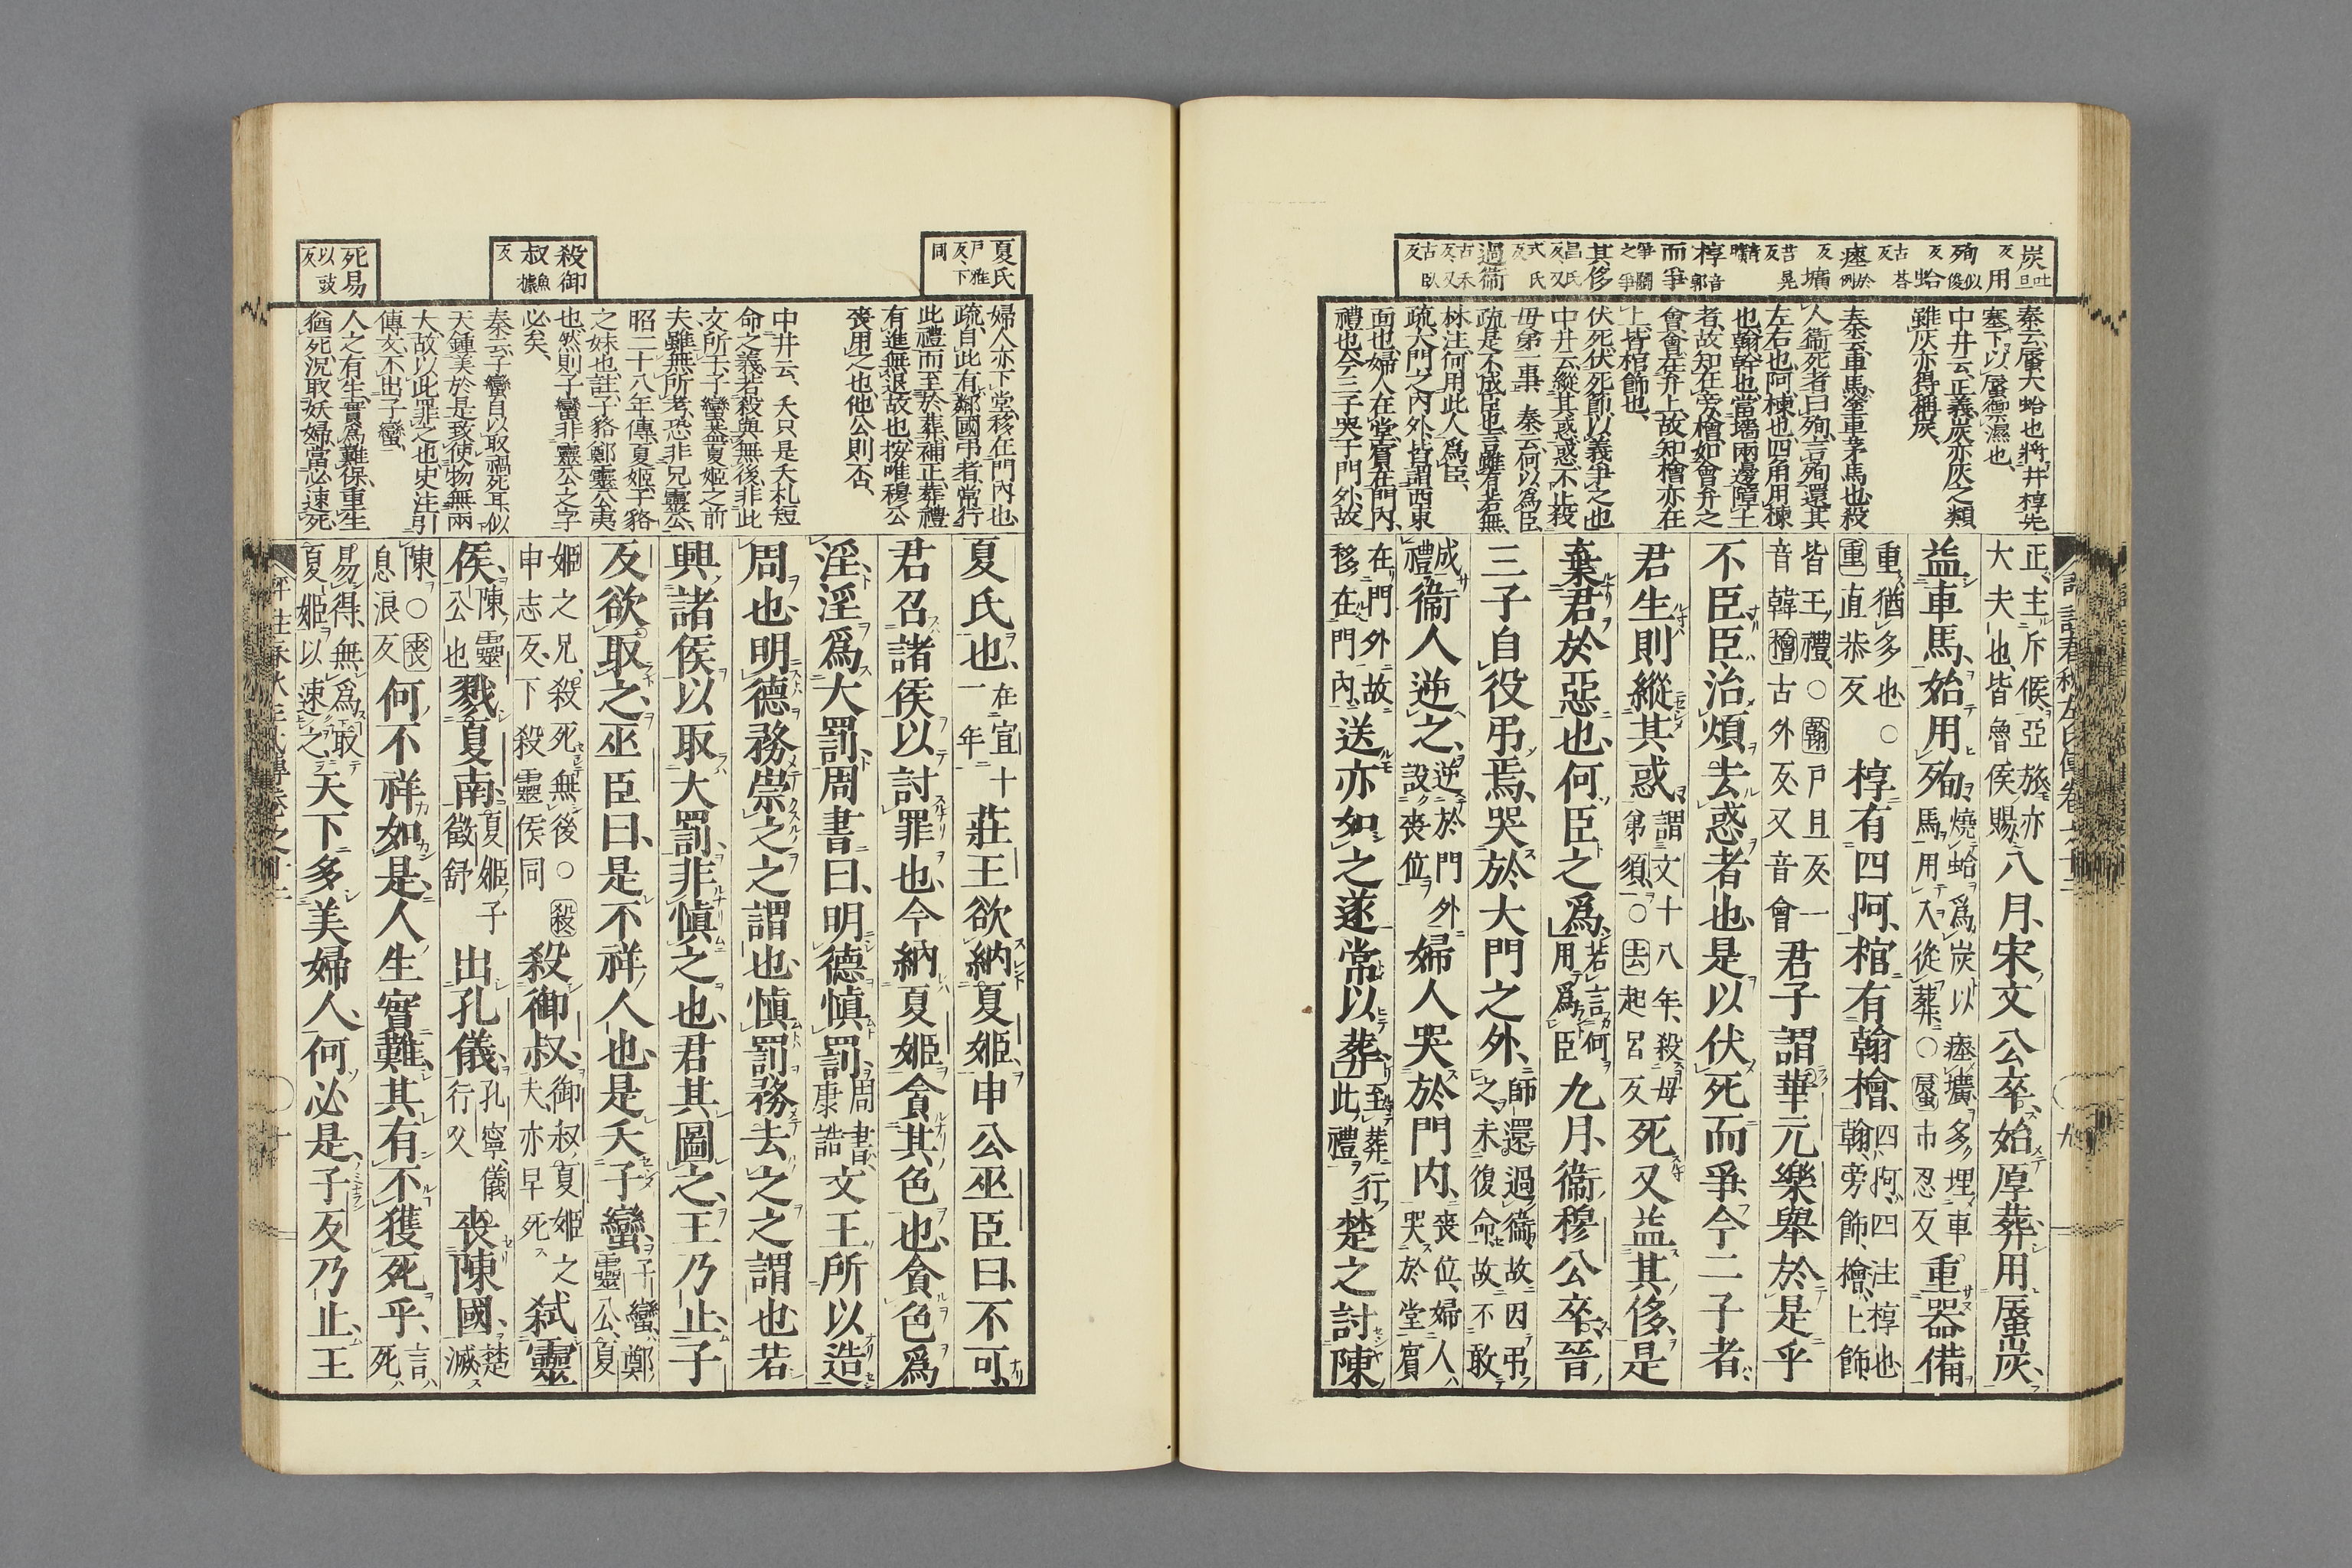 炭吐旦
反 用
殉似俊
反 蛤
古荅
反
瘞於例
反 壙
苦晃
反
椁音郭
而爭
爭鬭
之爭
其侈
昌氏
反又
式氏
反
過衞
古禾
反又
古臥
反
秦云蜃大蛤也將井椁先
塞下以蜃禦濕也
中井云正義炭亦灰之類
雖灰亦得稱炭
秦云重馬塗車茅馬也殺
人衞死者曰殉言殉還其
左右也阿棟也四角用棟
也翰幹也當墻兩邊障土
者故知在旁檜如會弁之
會會在弁上故知檜亦在
上皆棺飾也
伏死伏死節以義爭之也
中井云縱其惑惑不止殺
母弟一事 秦云何以爲臣
疏是不成臣也言雖有若無
林注何用此人爲臣
疏大門之內外皆謂西東
面也婦人在堂賓在門內
禮也今三子哭于門外故
正主斥侯亞旅亦
大夫也皆魯侯賜 八月宋文公卒始厚葬用蜃炭
益車馬始用殉 燒蛤爲炭以瘞壙多埋車
馬用人從葬○蜃市忍反 重器備
重猶多也○
重直恭反 椁有四阿棺有翰檜 四阿四注椁也
翰旁飾檜上飾
皆王禮○翰戸旦反一
音韓檜古外反又音會 君子謂華元樂舉於是乎
不臣臣治煩去惑者也是以伏死而爭今二子者
君生則縱其惑 謂文十八年殺母
弟須○去起呂反 死又益其侈是
棄君於惡也何臣之爲 若言何
用爲臣 九月衞穆公卒晉
三子自役弔焉哭於大門之外 師還過衞故因弔
之未復命故不敢
成
禮 衞人逆之 逆於門外
設喪位 婦人哭於門內 喪位婦人
哭於堂賓
在門外故
移在門內 送亦如之遂常以葬 至葬行
此禮 楚之討陳
夏氏
戸雅
反下
同
殺御
叔魚據
反
死易
以豉
反
婦人亦下堂移在門內也
疏自此有鄰國弔者常行
此禮而至於葬補正葬禮
有進無退故也按唯穆公
喪用之也他公則否
中井云夭只是夭札短
命之義若殺與無後非此
文所于子蠻蓋夏姬之前
夫雖無所考恐非兄靈公
昭二十八年傳夏姬子貉
之妹也註子貉鄭靈公夷
也然則子蠻非靈公之字
必矣
秦云子蠻自以取禍死耳似
天鍾美於是致使物無兩
大故以此罪之也史注引
傳文不出子蠻
人之有生實爲難保重生
猶死況取妖婦當必速死
夏氏也 在宣十
一年 莊王欲納夏姬申公巫臣曰不可
君召諸侯以討罪也今納夏姬貪其色也貪色爲
淫淫爲大罰周書曰明德愼罰 周書
康誥 文王所以造
周也明德務崇之之謂也愼罰務去之之謂也若
興諸侯以取大罰非愼之也君其圖之王乃止子
反欲取之巫臣曰是不祥人也是夭子蠻 子蠻鄭
靈公夏
姬之兄殺死無後○殺
申志反下殺靈侯同 殺御叔 御叔夏姬之
夫亦早死 弑靈
侯 陳靈
公也 戮夏南 夏姬子
徵舒 出孔儀 孔寧儀
行父 喪陳國 楚
滅
陳○喪
息浪反 何不祥如是人生實難其有不獲死乎 言
死
易得無爲取
夏姬以速之 天下多美婦人何必是子反乃止王